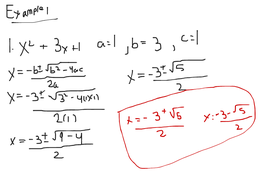 Example 1
1. x² + 3x+1 a=1, b=3, c=1
x = (-b ± √(b²-4ac)) / 2a
x = (-3 ± √(3²-4(1)(1))) / 2(1)
x = (-3 ± √(9-4)) / 2
x = (-3 ± √5) / 2
x = (-3 + √5) / 2 x = (-3 - √5) / 2